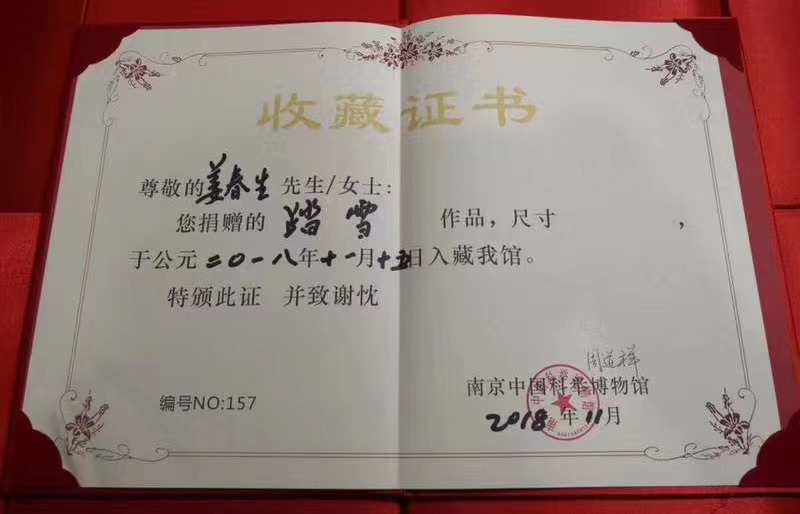 收藏证书
尊敬的姜春生先生/女士:
您捐赠的 踏雪 作品，尺寸 ，
于公元二〇一八年十一月十五日入藏我馆。
特颁此证 并致谢忱
周道祥
南京中国科举博物馆
编号NO:157
2018年11月